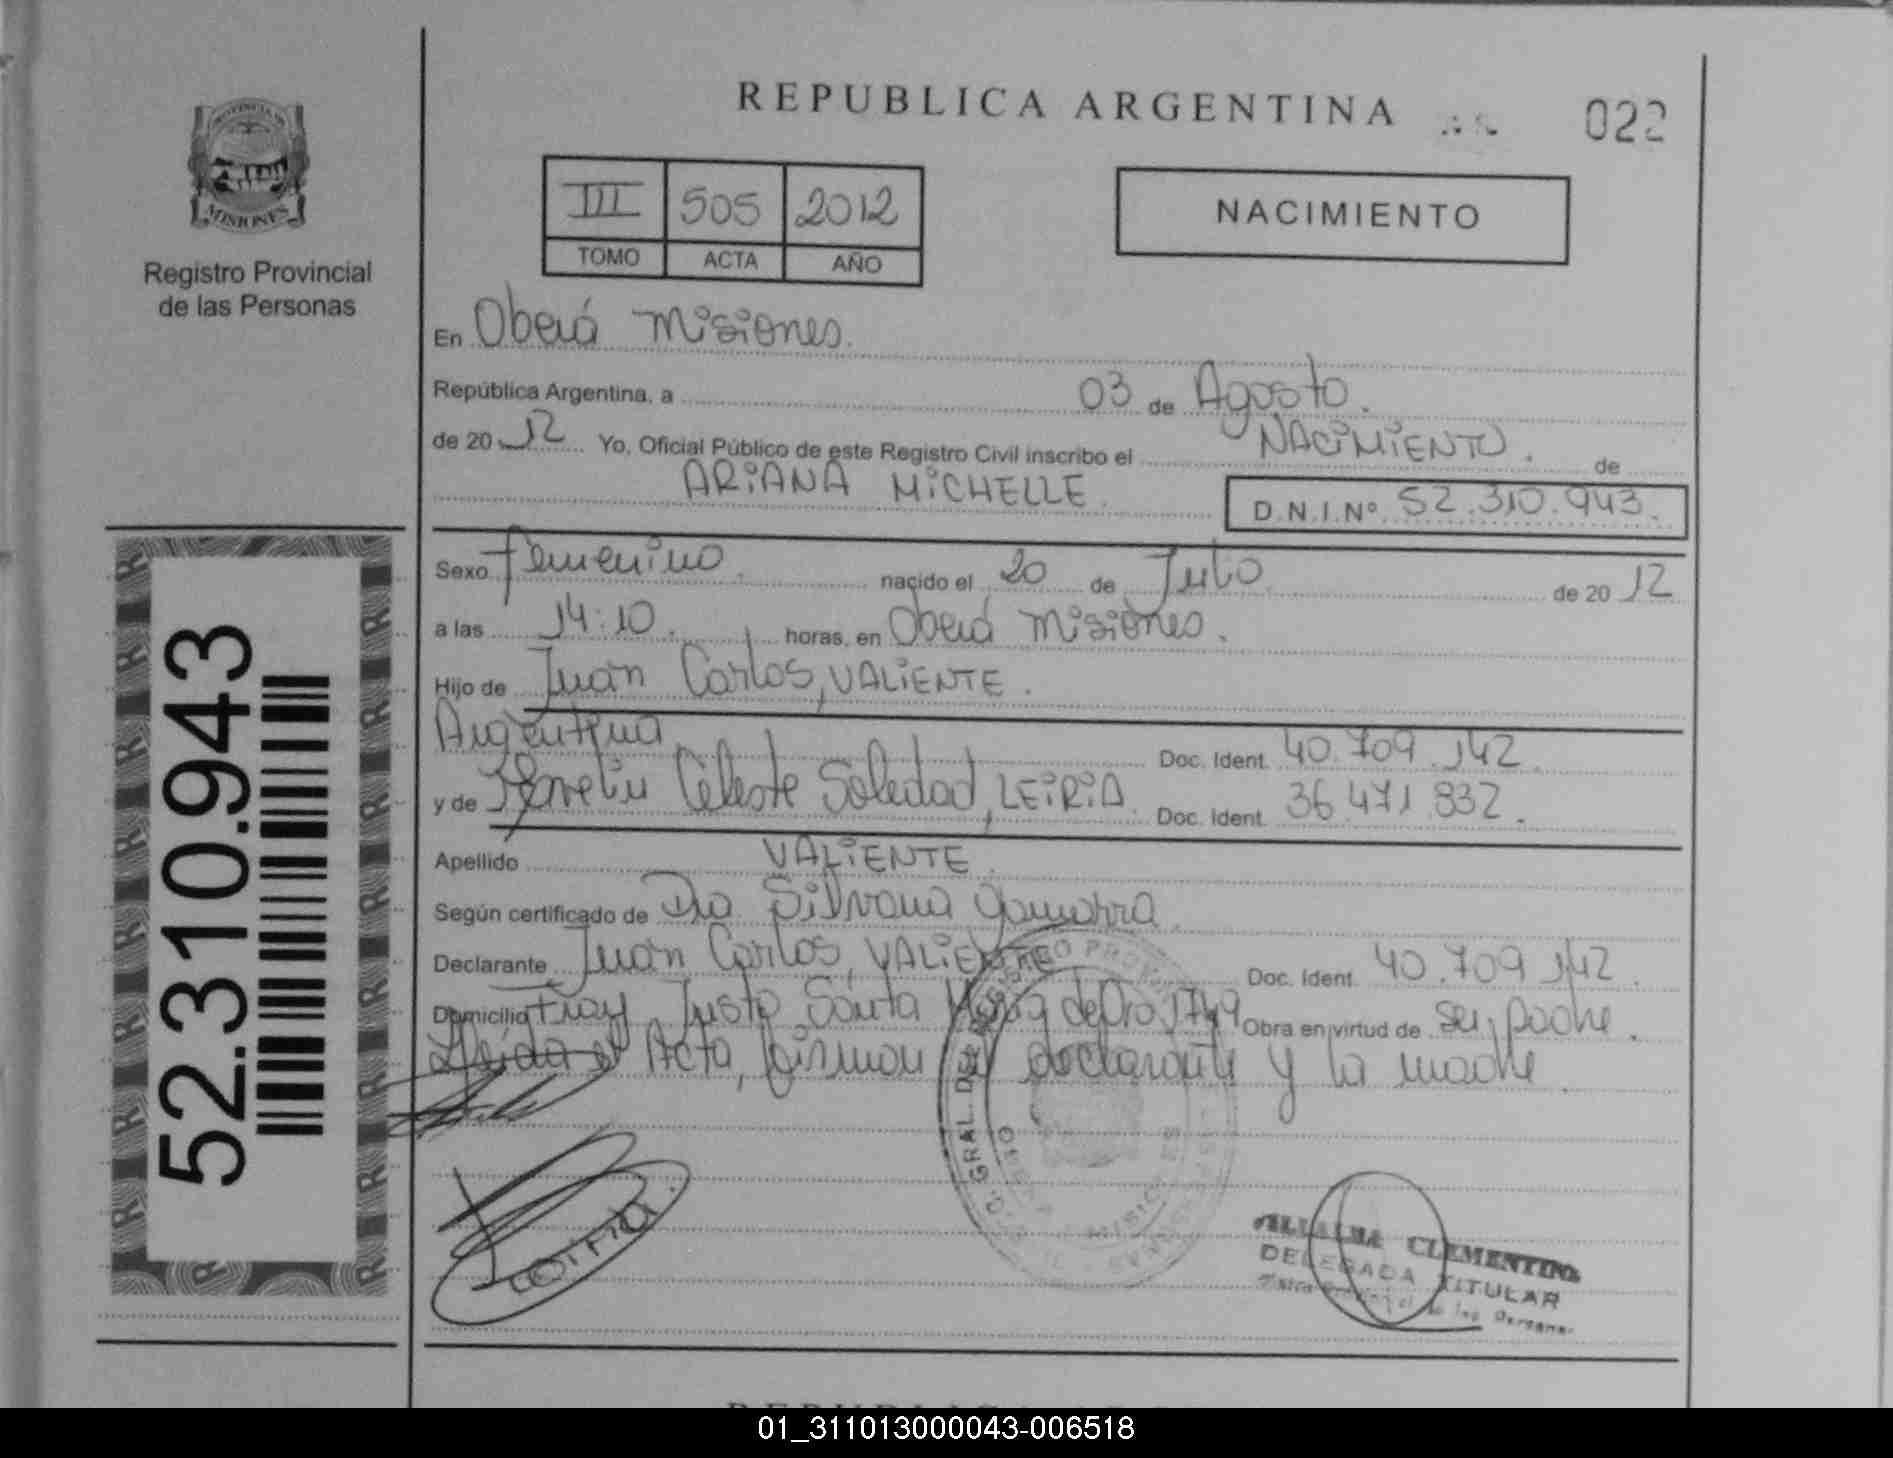 REPUBLICA ARGENTINA
022
PROVINCIA DE
MISIONES
Registro Provincial
de las Personas
III 505 2012
TOMO ACTA AÑO
NACIMIENTO
En Oberá Misiones.
República Argentina, a 03 de Agosto.
de 20 12 Yo, Oficial Público de este Registro Civil inscribo el NACIMIENTO. de
ARIANA MICHELLE. D.N.I.Nº 52.310.943.
Sexo Femenino. nacido el 20 de Julio. de 20 12
a las 14:10. horas, en Oberá Misiones.
Hijo de Juan Carlos, VALIENTE.
Argentina Doc. Ident. 40.709.142.
y de Celeste Soledad, LEIRIA. Doc. Ident. 36.471.832.
Apellido VALIENTE.
Según certificado de Dra. Silvana Gamarra.
Declarante Juan Carlos, VALIENTE Doc. Ident. 40.709.142.
Domicilio Fray Justo Santa María de Oro 1749 Obra en virtud de Ser padre.
Leída el Acta, firman el declarante y la madre.
52.310.943
CLEMENTINA
DELEGADA TITULAR
de las Personas
01_311013000043-006518